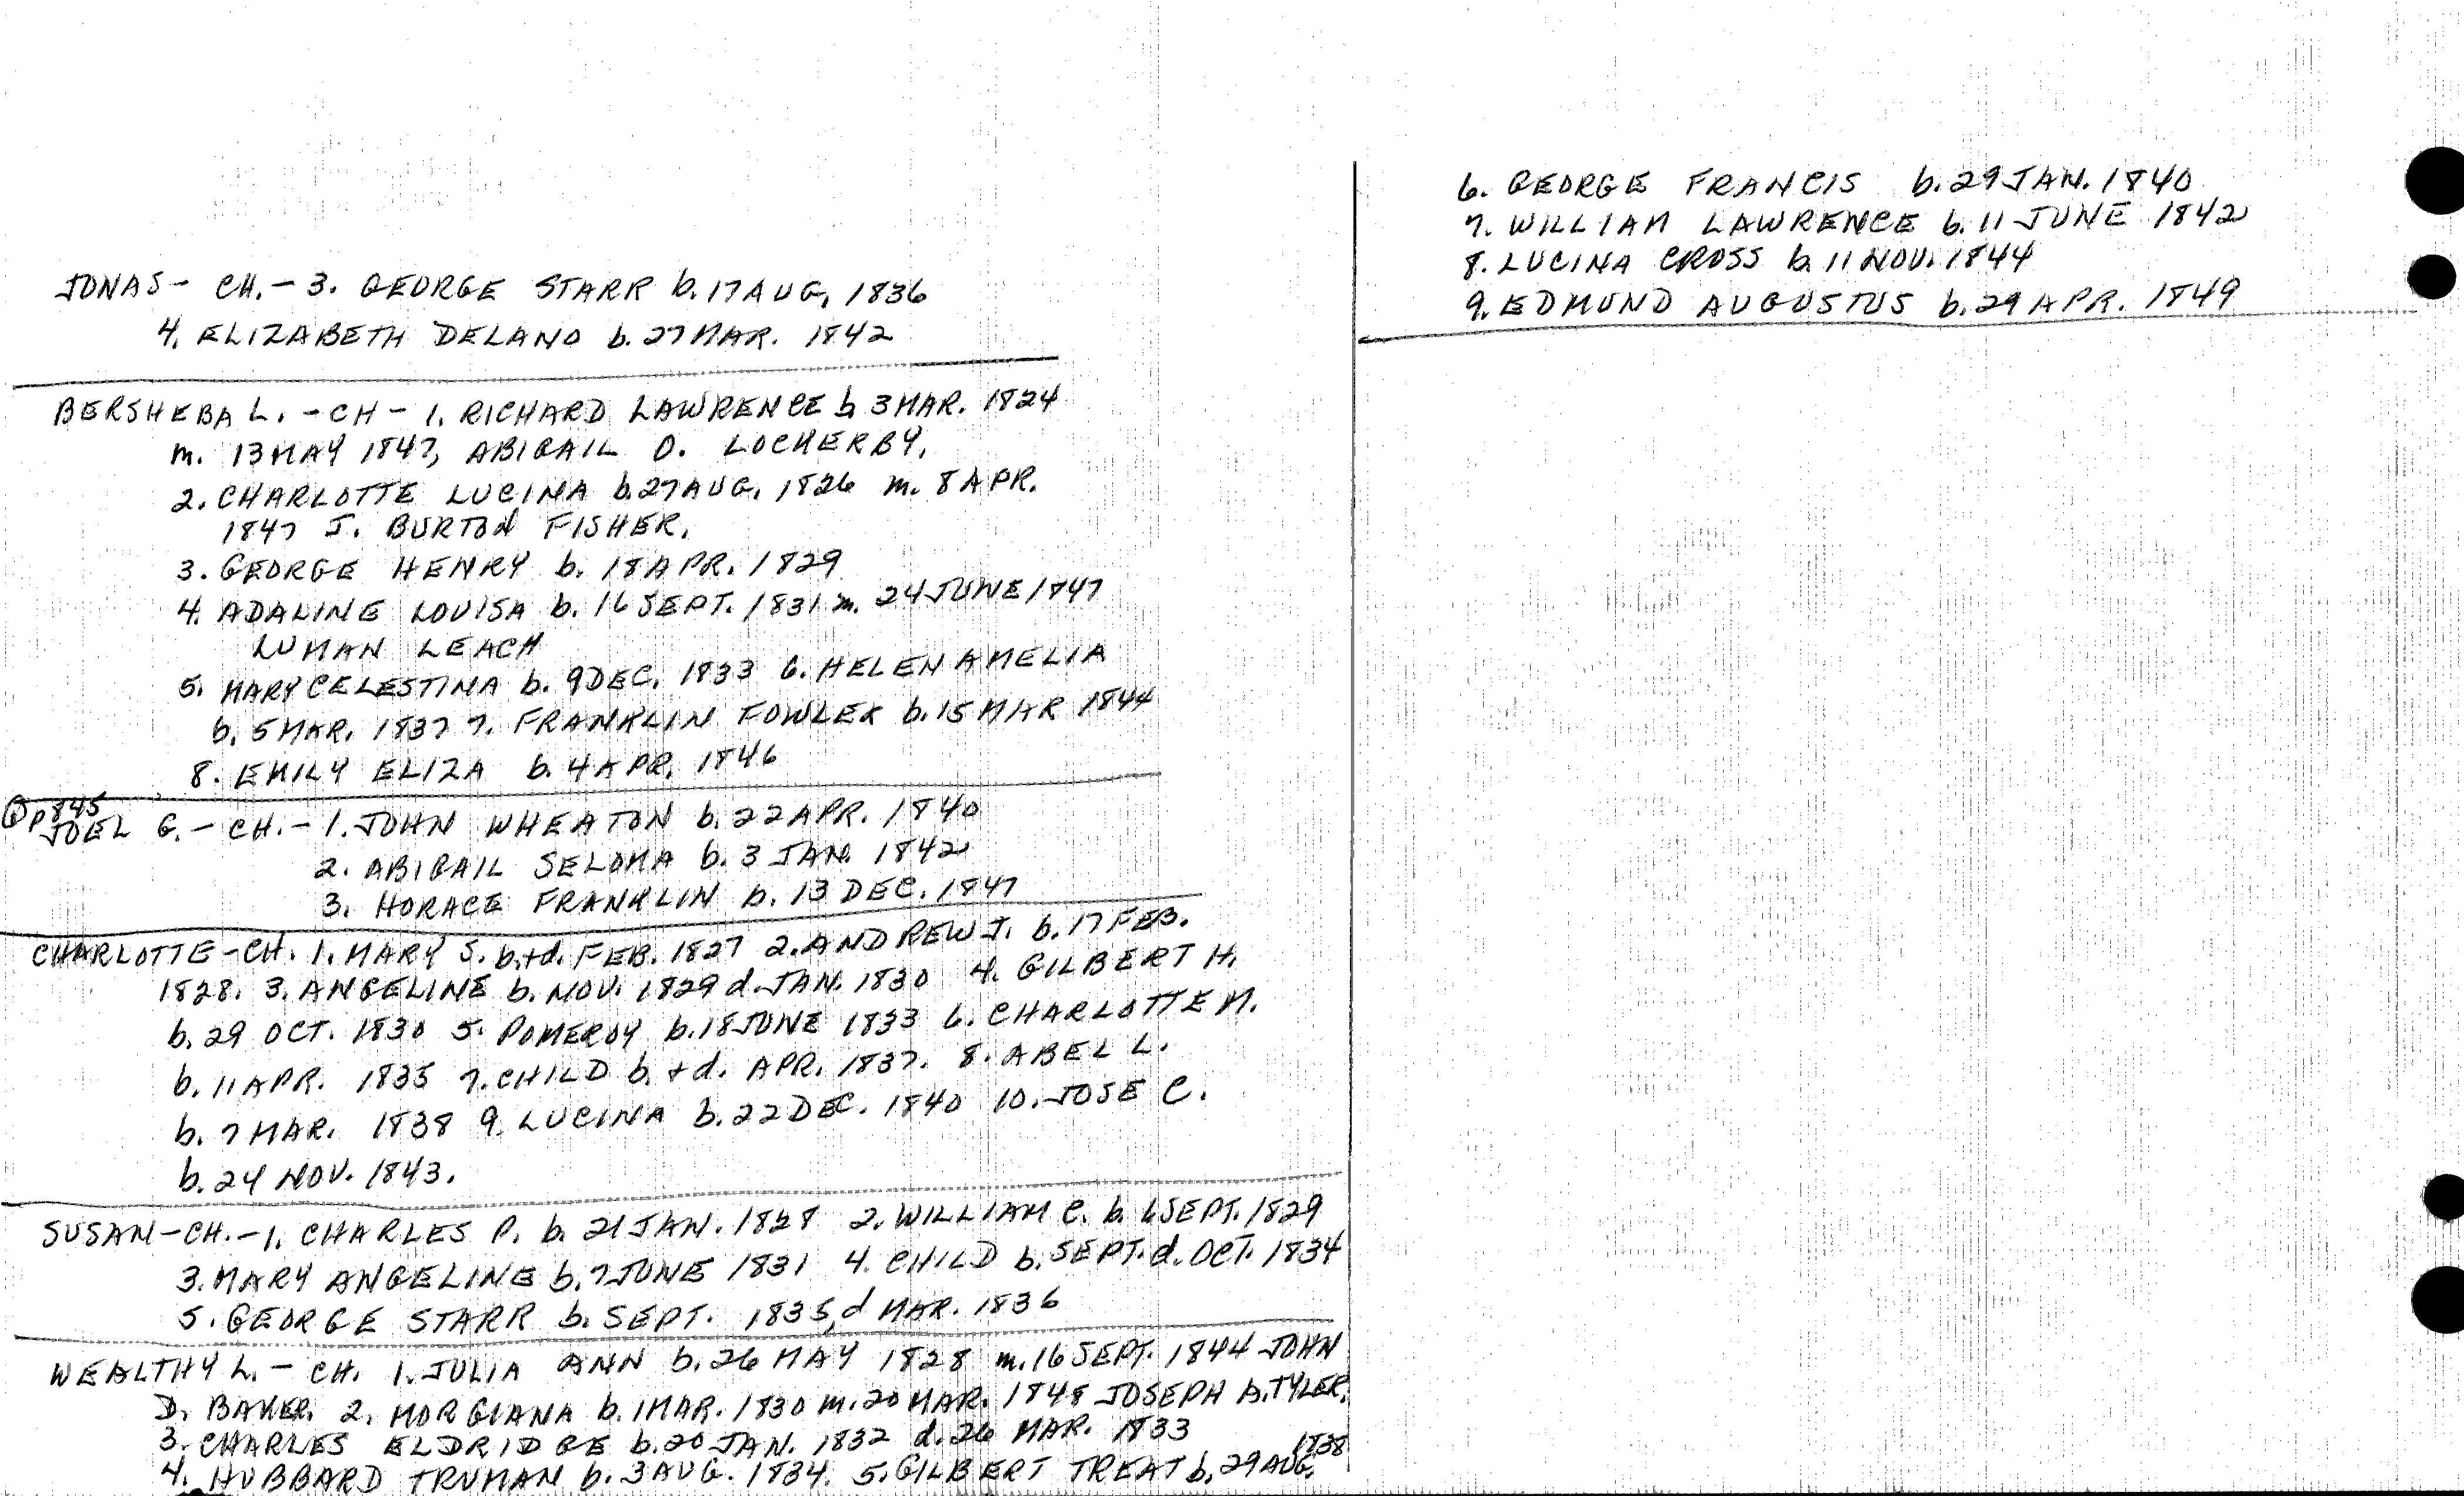 JONAS - CH. - 3. GEORGE STARR b. 17 AUG. 1836
4. ELIZABETH DELANO b. 27 MAR. 1842
BERSHEBA L. - CH - 1. RICHARD LAWRENCE b 3 MAR. 1824
m. 13 MAY 1847, ABIGAIL O. LOCKERBY.
2. CHARLOTTE LUCINA b. 27 AUG. 1826 m. 8 APR.
1847 J. BURTON FISHER.
3. GEORGE HENRY b. 18 APR. 1829
4. ADALINE LOUISA b. 16 SEPT. 1831 m. 24 JUNE 1847
LUMAN LEACH
5. MARY CELESTINA b. 9 DEC. 1833 6. HELEN AMELIA
b. 5 MAR. 1837 7. FRANKLIN FOWLER b. 15 MAR 1844
8. EMILY ELIZA b. 4 APR. 1846
p845
JOEL G. - CH. - 1. JOHN WHEATON b. 22 APR. 1840
2. ABIGAIL SELOMA b. 3 JAN. 1842
3. HORACE FRANKLIN b. 13 DEC. 1847
CHARLOTTE - CH. 1. MARY S. b. + d. FEB. 1827 2. ANDREW J. b. 17 FEB.
1828. 3. ANGELINE b. NOV. 1829 d. JAN. 1830 4. GILBERT H.
b. 29 OCT. 1830 5. POMEROY b. 18 JUNE 1833 6. CHARLOTTE M.
b. 11 APR. 1835 7. CHILD b. + d. APR. 1837. 8. ABEL L.
b. 7 MAR. 1838 9. LUCINA b. 22 DEC. 1840 10. JOSE C.
b. 24 NOV. 1843.
SUSAN - CH. - 1. CHARLES P. b. 21 JAN. 1828 2. WILLIAM C. b. 6 SEPT. 1829
3. MARY ANGELINE b. 7 JUNE 1831 4. CHILD b. SEPT. d. OCT. 1834
5. GEORGE STARR b. SEPT. 1835, d MAR. 1836
WEALTHY L. - CH. 1. JULIA ANN b. 26 MAY 1828 m. 16 SEPT. 1844 JOHN
D. BAKER. 2. MORGIANA b. 1 MAR. 1830 m. 20 MAR. 1848 JOSEPH b. TYLER.
3. CHARLES ELDRIDGE b. 20 JAN. 1832 d. 26 MAR. 1833
4. HUBBARD TRUMAN b. 3 AUG. 1834. 5. GILBERT TREAT b. 29 AUG. 1838
6. GEORGE FRANCIS b. 29 JAN. 1840
7. WILLIAM LAWRENCE b. 11 JUNE 1842
8. LUCINA CROSS b. 11 NOV. 1844
9. EDMUND AUGUSTUS b. 29 APR. 1849